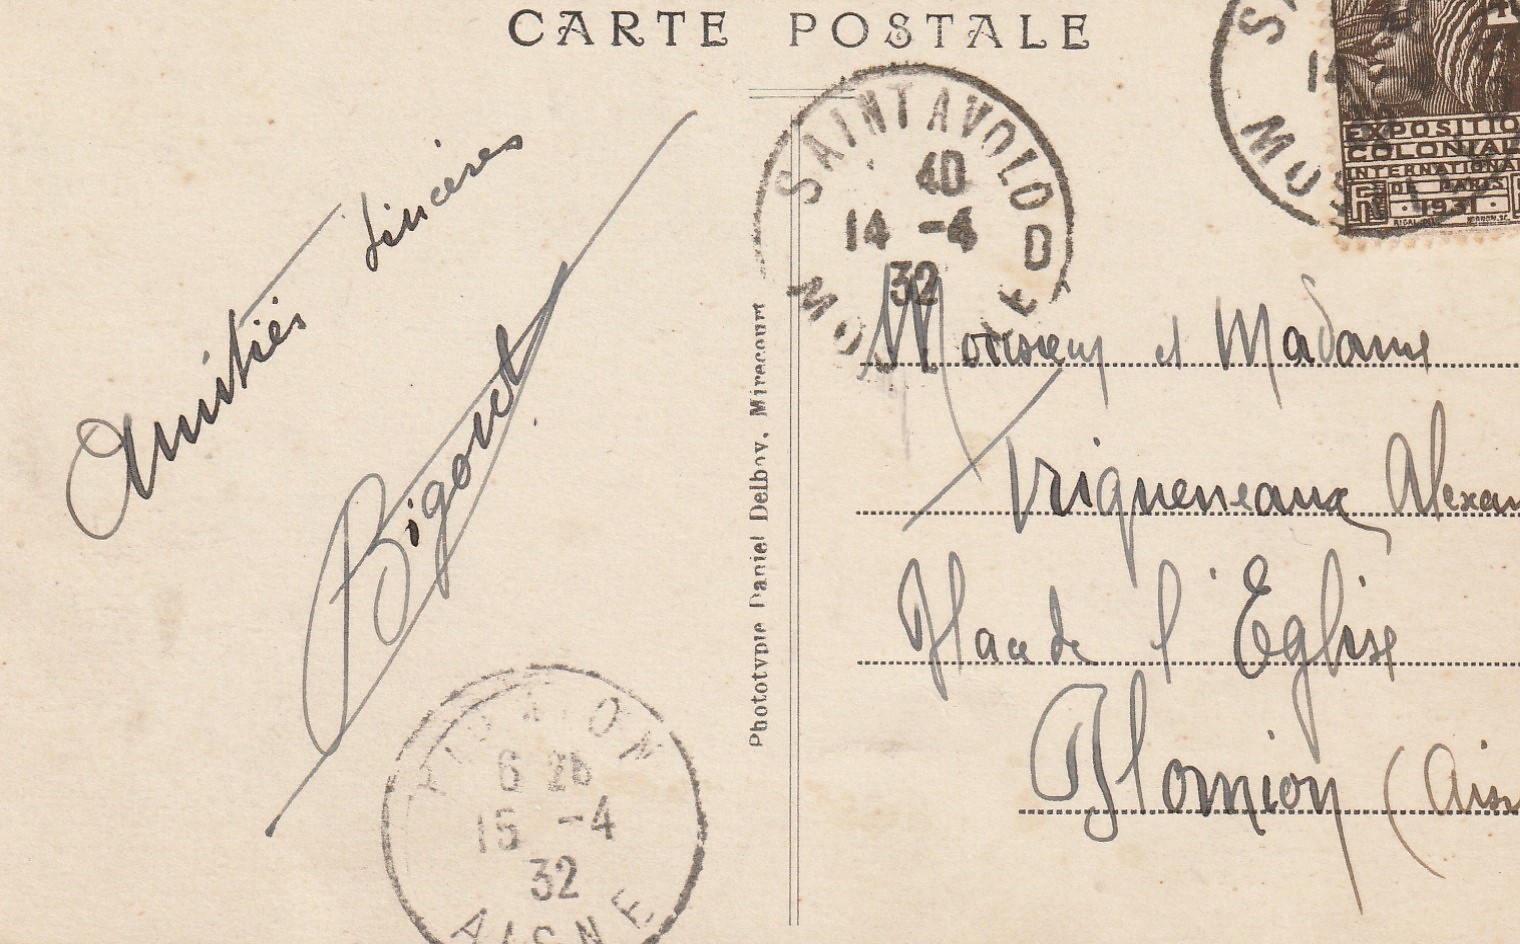 CARTE POSTALE
Amitiés sincères
Bigout
Phototypie Daniel Delboy, Mirecourt
SAINT AVOLD
40
14 -4
32
MOSELLE
14
MOS
EXPOSITIO
COLONIAL
INTERNATIONAL
DE PARIS
1931
Monsieur et Madame
Vrigneneaux Alexan
Place de l'Eglise
Plomion (Aisn
PLOMION
6
15 -4
32
AISNE